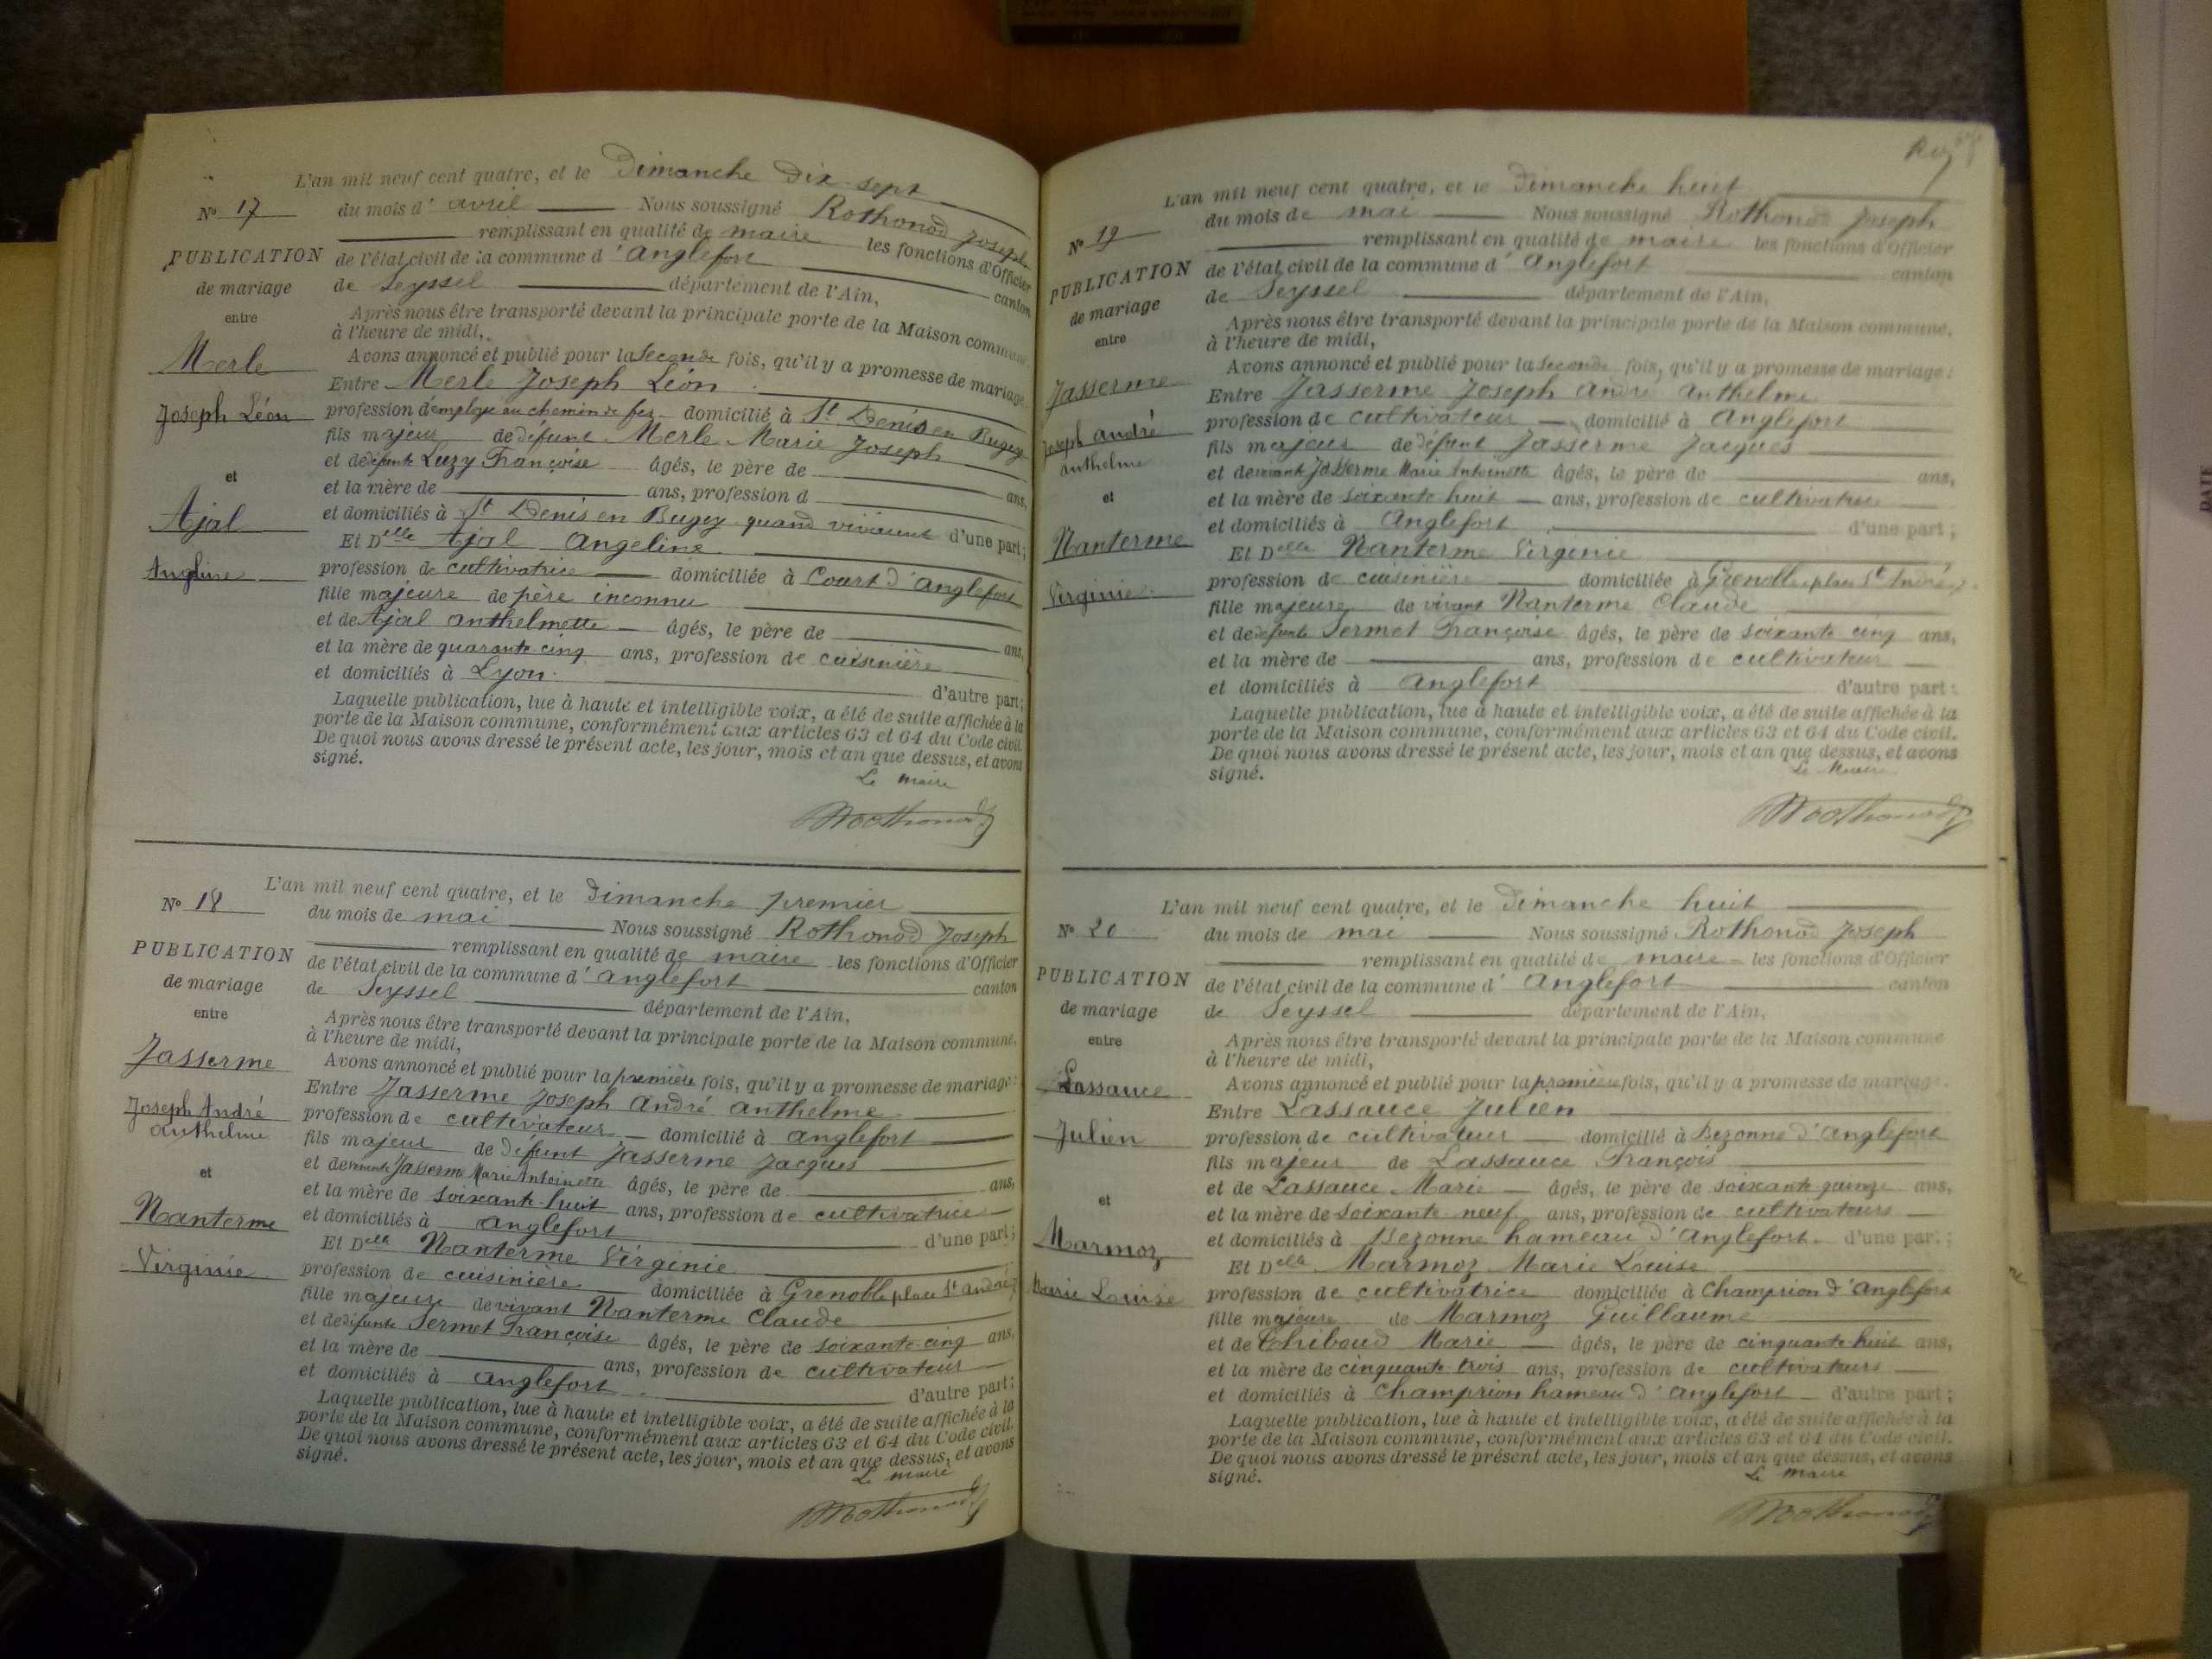 L'an mil neuf cent quatre, et le Dimanche Dix-sept
Nº 17
du mois d' avril Nous soussigné Rothonod Joseph
remplissant en qualité de maire les fonctions d'Officier
PUBLICATION
de mariage
entre
Merle
Joseph Léon
et
Ajal
Angeline
de l'état civil de la commune d' Anglefort canton
de Seyssel département de l'Ain,
Après nous être transporté devant la principale porte de la Maison commune,
à l'heure de midi,
Avons annoncé et publié pour la Seconde fois, qu'il y a promesse de mariage:
Entre Merle Joseph Léon
profession d'employé au chemin de fer domicilié à St Denis en Bugey
fils majeur de défunt Merle Marie Joseph
et de défunte Luzy Françoise âgés, le père de ans,
et la mère de ans, profession d
et domiciliés à St Denis en Bugey quand vivaient d'une part;
Et Delle Ajal Angeline
profession de cultivatrice domiciliée à Court d'Anglefort
fille majeure de père inconnu
et de Ajal Anthelmette âgés, le père de ans,
et la mère de quarante-cinq ans, profession de cuisinière
et domiciliés à Lyon. d'autre part;
Laquelle publication, lue à haute et intelligible voix, a été de suite affichée à la
porte de la Maison commune, conformément aux articles 63 et 64 du Code civil.
De quoi nous avons dressé le présent acte, les jour, mois et an que dessus, et avons
signé.
Le maire
Rothonod
L'an mil neuf cent quatre, et le Dimanche premier
Nº 18
du mois de mai Nous soussigné Rothonod Joseph
remplissant en qualité de maire les fonctions d'Officier
PUBLICATION
de mariage
entre
Jasserme
Joseph André
Anthelme
et
Nanterme
Virginie
de l'état civil de la commune d' Anglefort canton
de Seyssel département de l'Ain,
Après nous être transporté devant la principale porte de la Maison commune,
à l'heure de midi,
Avons annoncé et publié pour la première fois, qu'il y a promesse de mariage:
Entre Jasserme Joseph André Anthelme
profession de cultivateur domicilié à Anglefort
fils majeur de défunt Jasserme Jacques
et de vivante Jasserme Marie Antoinette âgés, le père de ans,
et la mère de soixante-huit ans, profession de cultivatrice
et domiciliés à Anglefort d'une part;
Et Delle Nanterme Virginie
profession de cuisinière domiciliée à Grenoble place St André,
fille majeure de vivant Nanterme Claude
et de défunte Sermet Françoise âgés, le père de soixante-cinq ans,
et la mère de ans, profession de cultivateur
et domiciliés à Anglefort d'autre part;
Laquelle publication, lue à haute et intelligible voix, a été de suite affichée à la
porte de la Maison commune, conformément aux articles 63 et 64 du Code civil.
De quoi nous avons dressé le présent acte, les jour, mois et an que dessus, et avons
signé.
Le maire
Rothonod
L'an mil neuf cent quatre, et le Dimanche huit
Nº 19
du mois de mai Nous soussigné Rothonod Joseph
remplissant en qualité de maire les fonctions d'Officier
PUBLICATION
de mariage
entre
Jasserme
Joseph André
Anthelme
et
Nanterme
Virginie
de l'état civil de la commune d' Anglefort canton
de Seyssel département de l'Ain,
Après nous être transporté devant la principale porte de la Maison commune,
à l'heure de midi,
Avons annoncé et publié pour la Seconde fois, qu'il y a promesse de mariage:
Entre Jasserme Joseph André Anthelme
profession de cultivateur domicilié à Anglefort
fils majeur de défunt Jasserme Jacques
et de vivante Jasserme Marie Antoinette âgés, le père de ans,
et la mère de soixante huit ans, profession de cultivatrice
et domiciliés à Anglefort d'une part;
Et Delle Nanterme Virginie
profession de cuisinière domiciliée à Grenoble place St André,
fille majeure de vivant Nanterme Claude
et de défunte Sermet Françoise âgés, le père de soixante cinq ans,
et la mère de ans, profession de cultivateur
et domiciliés à Anglefort d'autre part;
Laquelle publication, lue à haute et intelligible voix, a été de suite affichée à la
porte de la Maison commune, conformément aux articles 63 et 64 du Code civil.
De quoi nous avons dressé le présent acte, les jour, mois et an que dessus, et avons
signé.
Le Maire
Rothonod
L'an mil neuf cent quatre, et le Dimanche huit
Nº 20
du mois de mai Nous soussigné Rothonod Joseph
remplissant en qualité de maire les fonctions d'Officier
PUBLICATION
de mariage
entre
Lassauce
Julien
et
Marmoz
Marie Louise
de l'état civil de la commune d' Anglefort canton
de Seyssel département de l'Ain,
Après nous être transporté devant la principale porte de la Maison commune
à l'heure de midi,
Avons annoncé et publié pour la première fois, qu'il y a promesse de mariage.
Entre Lassauce Julien
profession de cultivateur domicilié à Bezonne d'Anglefort
fils majeur de Lassauce François
et de Lassauce Marie âgés, le père de soixante quinze ans,
et la mère de soixante-neuf ans, profession de cultivateurs
et domiciliés à Bezonne hameau d'Anglefort. d'une part;
Et Delle Marmoz Marie Louise
profession de cultivatrice domiciliée à Champrion d'Anglefort
fille majeure de Marmoz Guillaume
et de Thiboud Marie âgés, le père de cinquante-huit ans,
et la mère de cinquante-trois ans, profession de cultivateurs
et domiciliés à Champrion hameau d'Anglefort d'autre part;
Laquelle publication, lue à haute et intelligible voix, a été de suite affichée à la
porte de la Maison commune, conformément aux articles 63 et 64 du Code civil.
De quoi nous avons dressé le présent acte, les jour, mois et an que dessus, et avons
signé.
Le maire
Rothonod
DATE